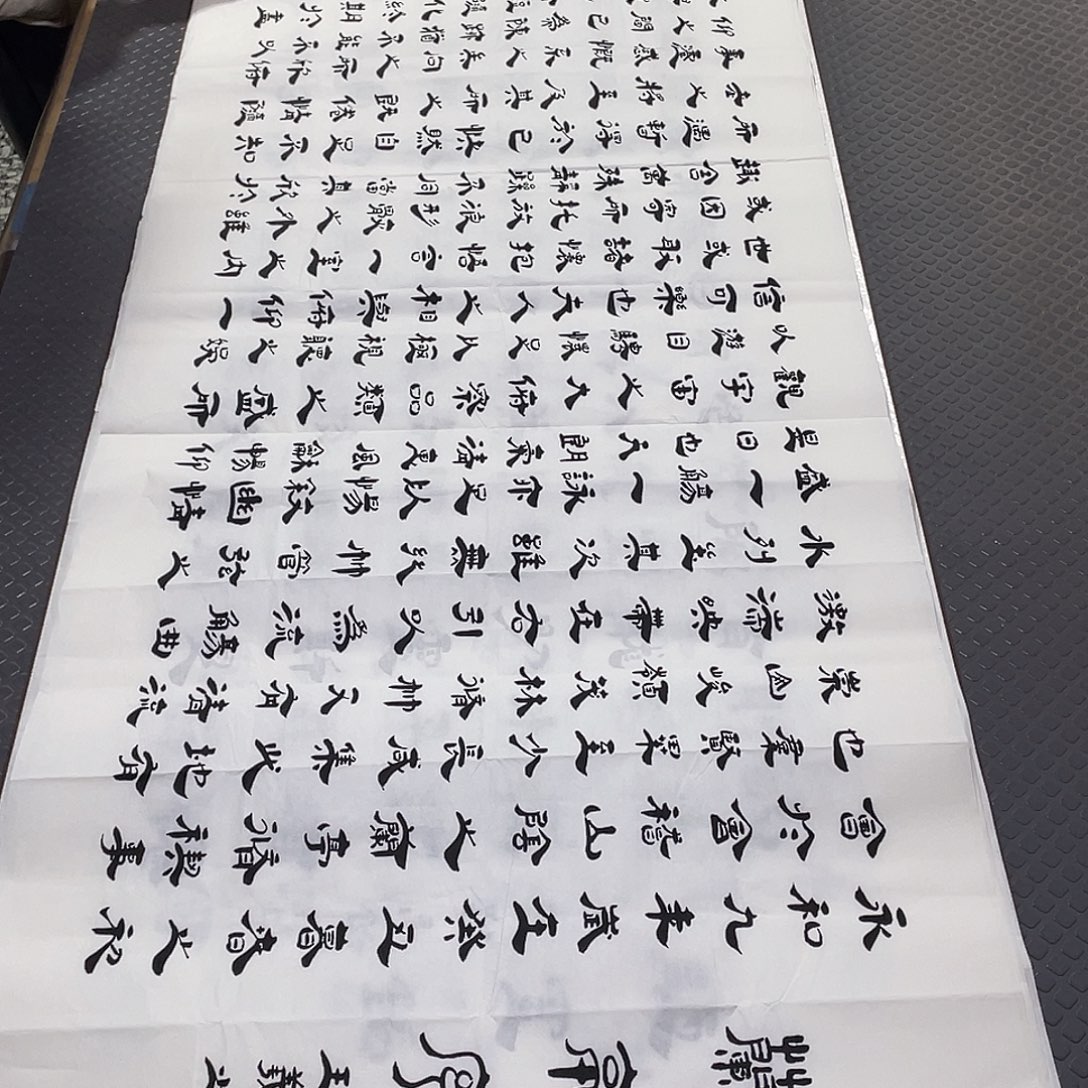 蘭亭序 王羲之
永和九年歲在癸丑暮春之初
會於會稽山陰之蘭亭脩禊事
也群賢畢至少長咸集此地有
崇山峻領茂林脩竹又有清流
激湍映帶左右引以為流觴曲
水列坐其次雖無絲竹管弦之
盛一觴一詠亦足以暢敘幽情
是日也天朗氣清惠風和暢仰
觀宇宙之大俯察品類之盛所
以遊目騁懷足以極視聽之娛
信可樂也夫人之相與俯仰一
世或取諸懷抱悟言一室之內
或因寄所託放浪形骸之外雖
趣舍萬殊靜躁不同當其欣於
所遇暫得於己快然自足不知
老之將至及其所之既倦情隨
事遷感慨係之矣向之所欣俯
仰之間已為陳跡猶不能不以
隨化終期於盡